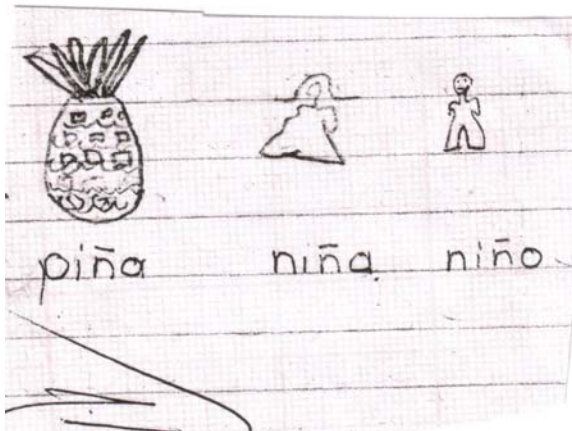 piña niña niño